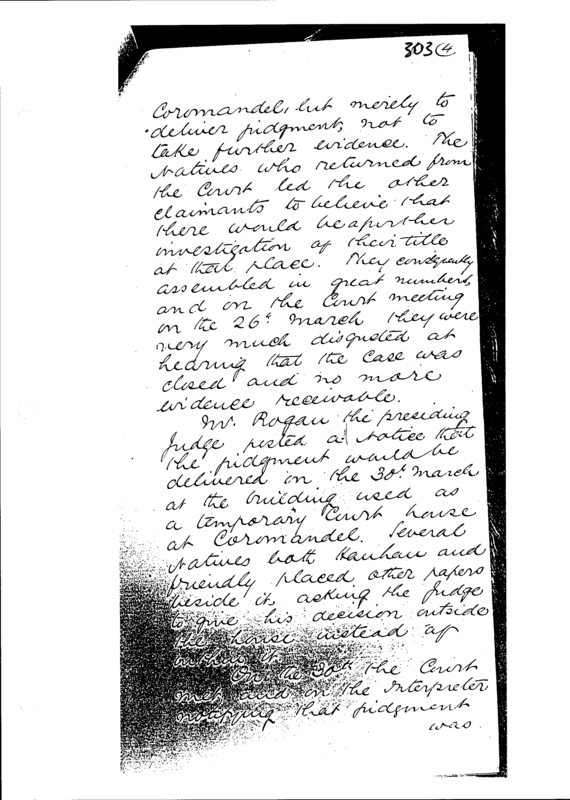 303 (4)
Coromandel, but merely to
deliver judgment, not to
take further evidence. The
Natives who returned from
the Court led the other
claimants to believe that
there would be a further
investigation of their title
at that place. They consequently
assembled in great numbers,
and on the Court meeting
on the 26th March they were
very much disgusted at
hearing that the case was
closed and no more
evidence receivable.
Mr. Rogan the presiding
Judge posted a Notice that
the judgment would be
delivered on the 30th March
at the building used as
a temporary Court house
at Coromandel. Several
Natives both Hauhau and
friendly placed other papers
beside it, asking the Judge
to give his decision outside
the house instead of
within it.
On the 30th the Court
met and on the Interpreter
notifying that judgment
was